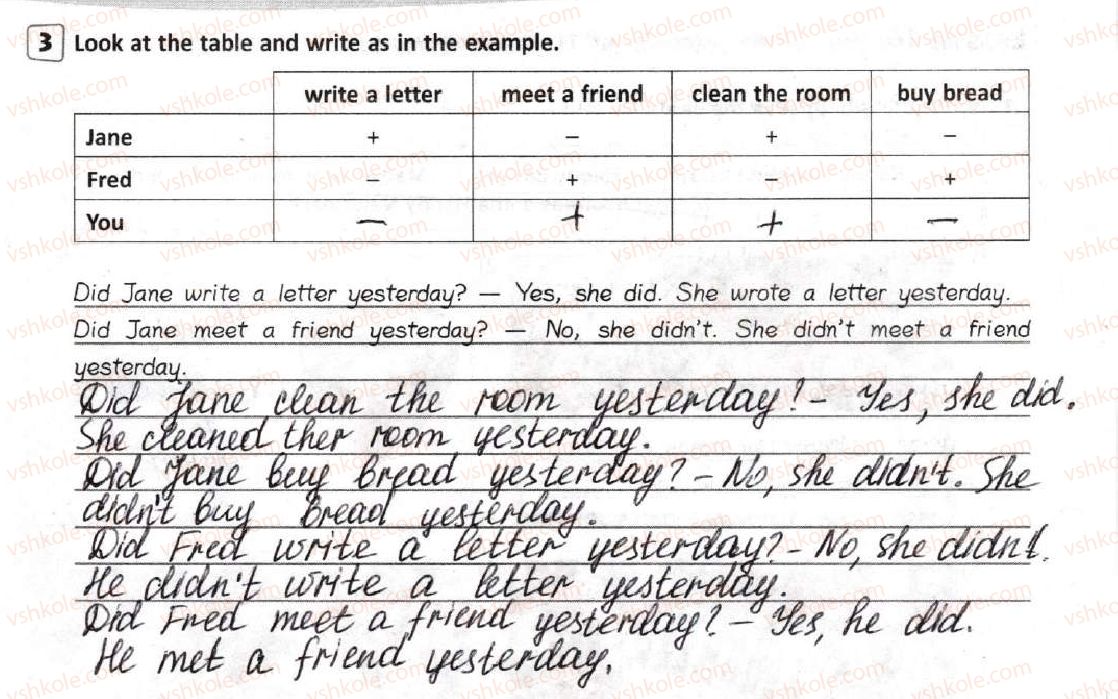 3 Look at the table and write as in the example.
write a letter meet a friend clean the room buy bread
Jane + – + –
Fred – + – +
You – + + –
Did Jane write a letter yesterday? — Yes, she did. She wrote a letter yesterday.
Did Jane meet a friend yesterday? — No, she didn't. She didn't meet a friend
yesterday.
Did Jane clean the room yesterday? - Yes, she did.
She cleaned ther room yesterday.
Did Jane buy bread yesterday? - No, she didn't. She
didn't buy bread yesterday.
Did Fred write a letter yesterday? - No, she didn't.
He didn't write a letter yesterday.
Did Fred meet a friend yesterday? - Yes, he did.
He met a friend yesterday.
vshkole.com